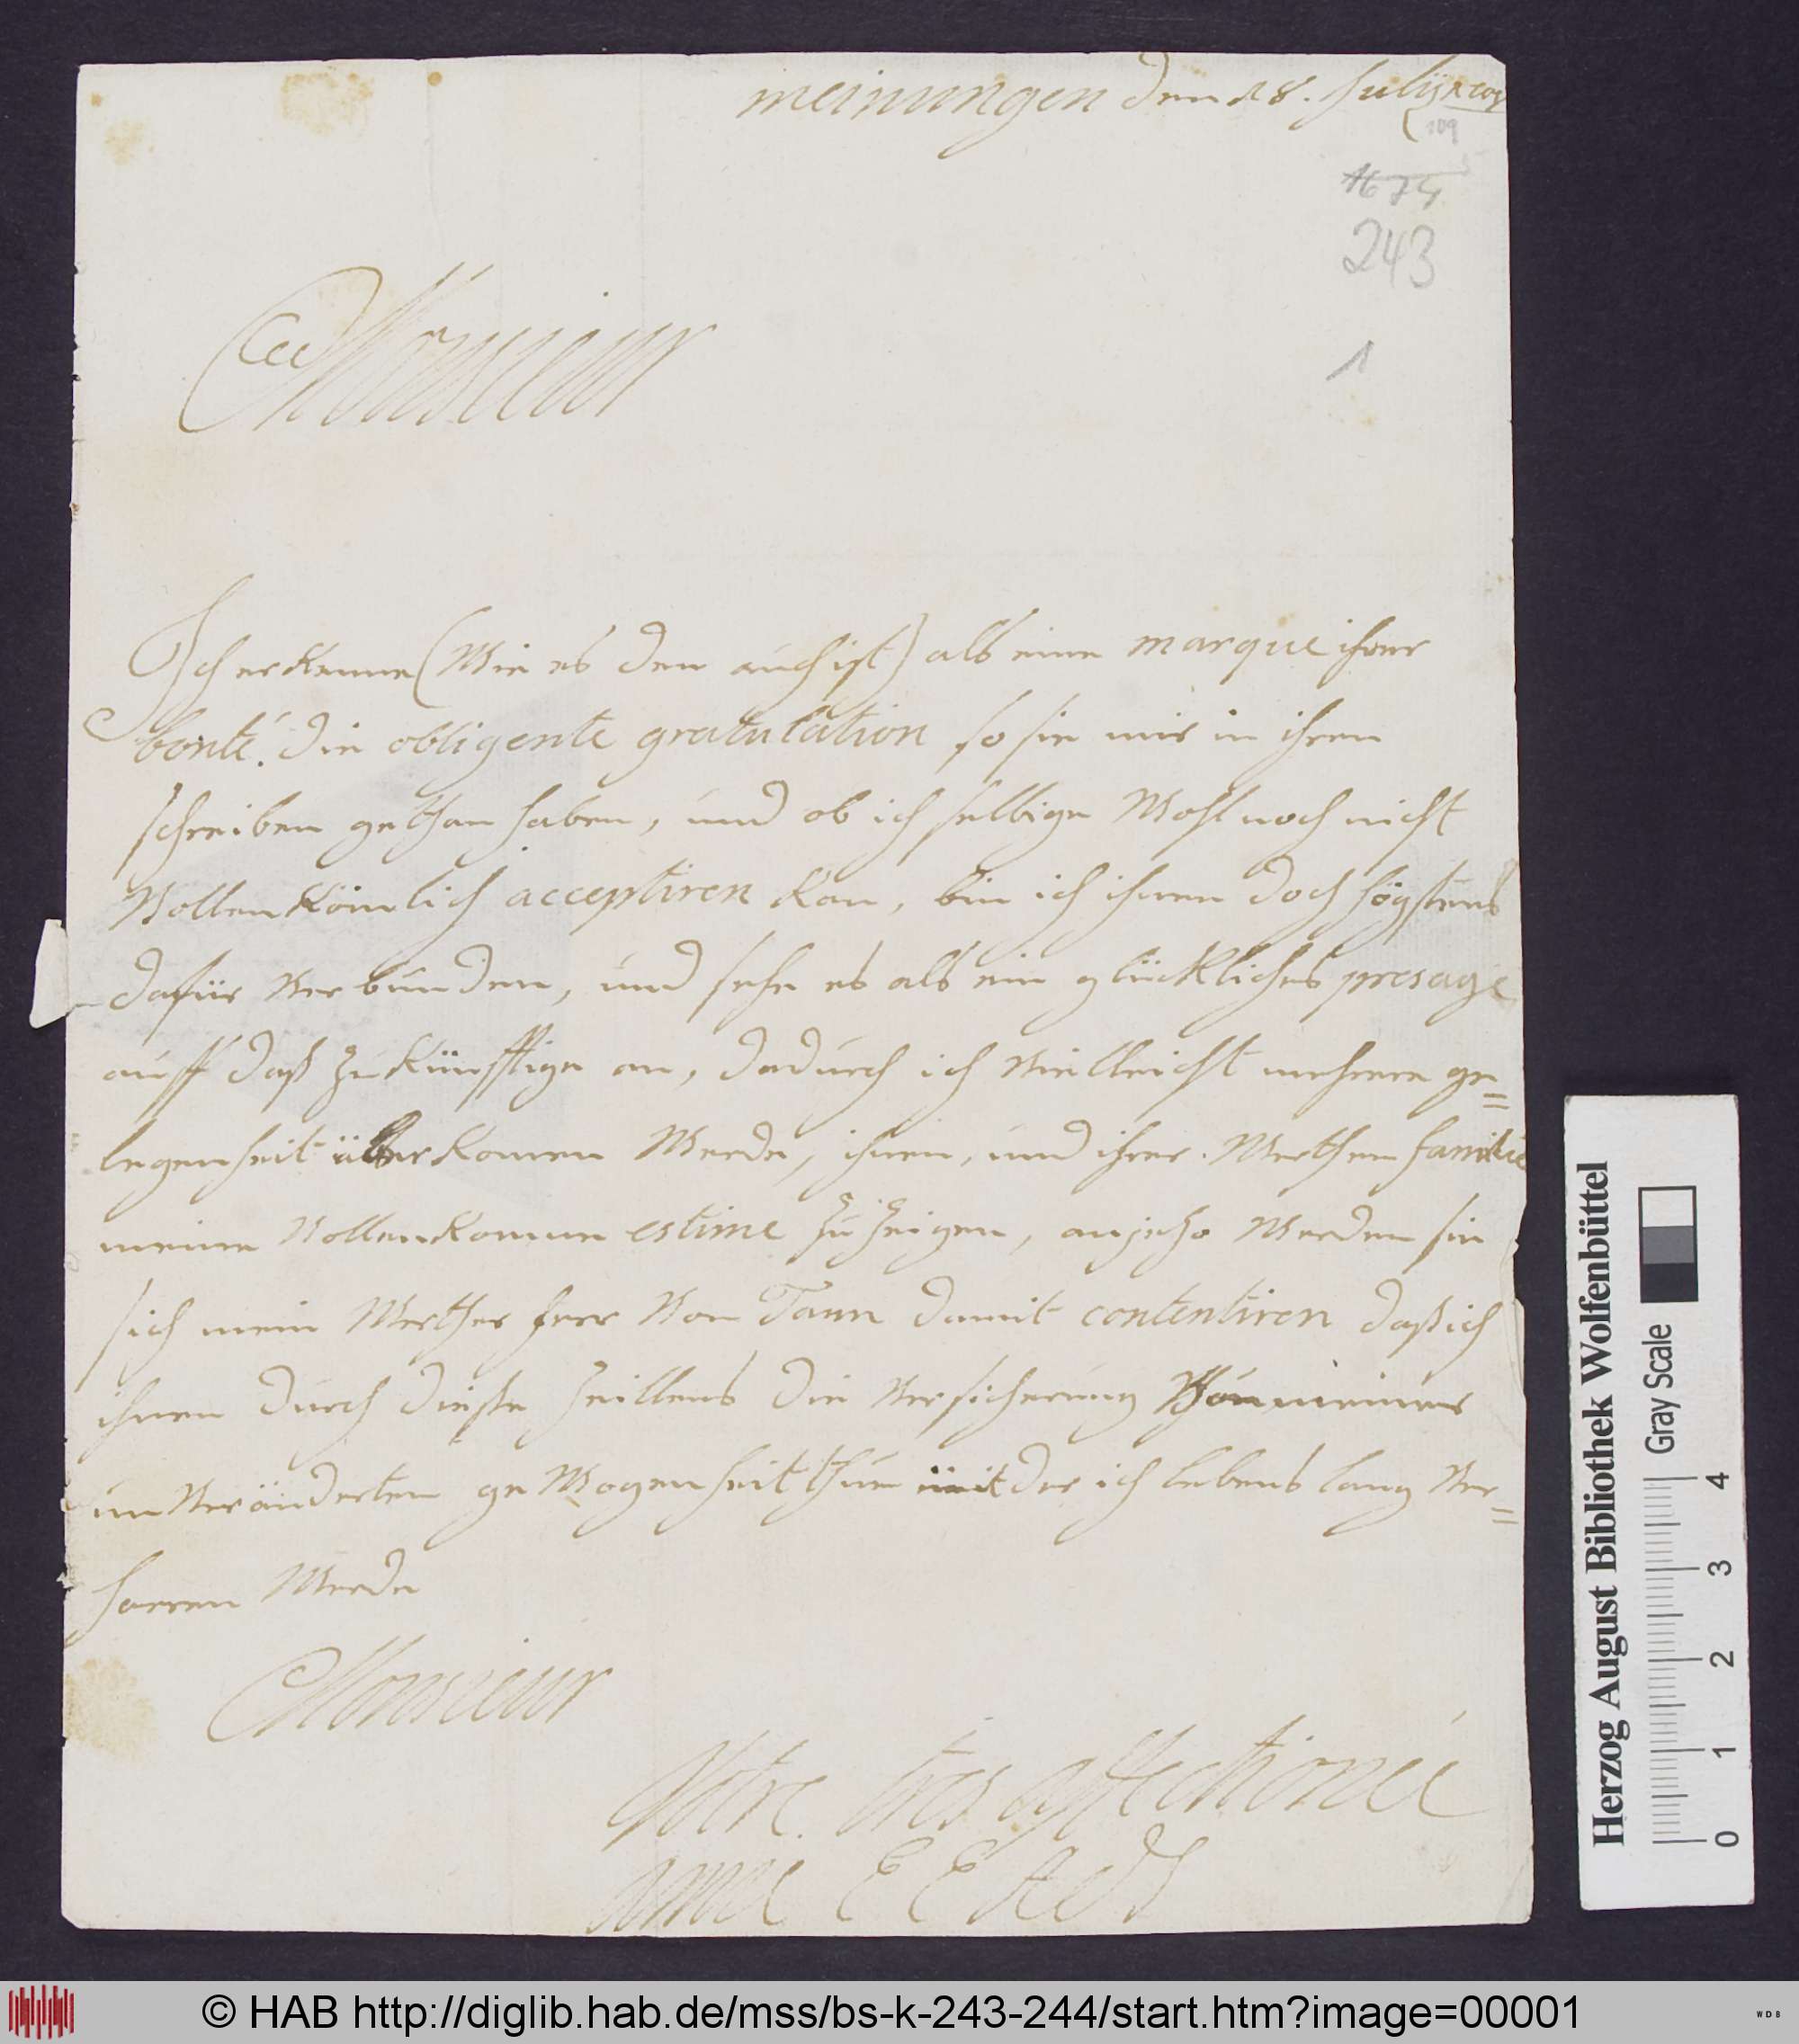 meinungen den 18. Julij 1709
109
1674
243
1
Monsieur
Ich erkenne (Wie es den auch ist) alß eine marque ihrer
bonté. die obligente gratulation so sie mir in ihren
schreiben gethan haben, und ob ich selbige Wohl noch nicht
Vollenkömlich acceptiren kan, bin ich ihnen doch högstens
dafür Verbunden, und sehe es alß ein glückliches presage
auff daß zukünfftige an, dadurch ich Vielleicht mehrere ge=
legenheit überkomen Werde, ihnen, und ihrer Werthen familie
meine Vollenkomne estime zu Zeigen, anjeho Werden sie
sich mein Werther Herr Von Tann damit contentiren daß ich
ihnen durch dieße Zeillens die Versicherung Von meiner
unVeränderten geWogenheit thue mit der ich lebens lang Ver=
harren Werde
Monsieur
Votre tres affectionée
amie E E A
Herzog August Bibliothek Wolfenbüttel
Gray Scale
0 1 2 3 4
© HAB http://diglib.hab.de/mss/bs-k-243-244/start.htm?image=00001
WDB